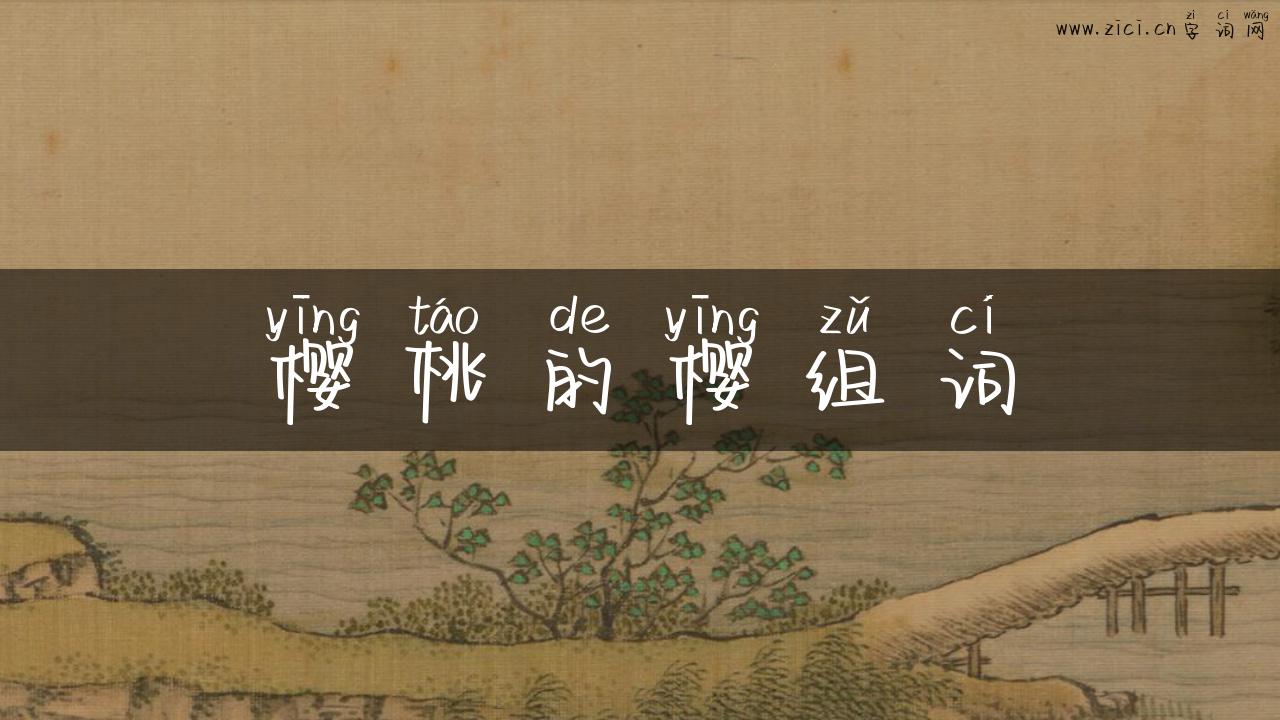 zì cí wǎng
www.zici.cn 字 词 网
yīng táo de yīng zǔ cí
樱 桃 的 樱 组 词